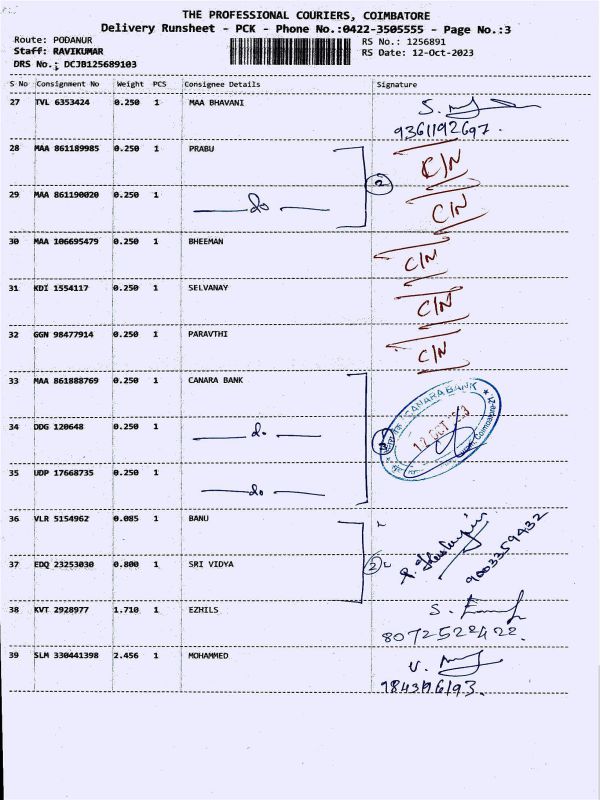 THE PROFESSIONAL COURIERS, COIMBATORE
Delivery Runsheet - PCK - Phone No.:0422-3505555 - Page No.:3
Route: PODANUR
RS No.: 1256891
Staff: RAVIKUMAR
RS Date: 12-Oct-2023
DRS No.: DCJB125689103
S No Consignment No Weight PCS Consignee Details Signature
27 TVL 6353424 0.250 1 MAA BHAVANI
9361192697.
28 MAA 861189985 0.250 1 PRABU C/N
2
29 MAA 861190020 0.250 1 do C/N
30 MAA 106695479 0.250 1 BHEEMAN C/N
31 KDI 1554117 0.250 1 SELVANAY C/N
32 GGN 98477914 0.250 1 PARAVTHI C/N
33 MAA 861888769 0.250 1 CANARA BANK
CANARA BANK
34 DDG 120648 0.250 1 do
12 OCT
35 UDP 17668735 0.250 1 do
36 VLR 5154962 0.085 1 BANU
37 EDQ 23253030 0.800 1 SRI VIDYA 2
9003359432
38 KVT 2928977 1.710 1 EZHILS
8072522422.
39 SLM 330441398 2.456 1 MOHAMMED